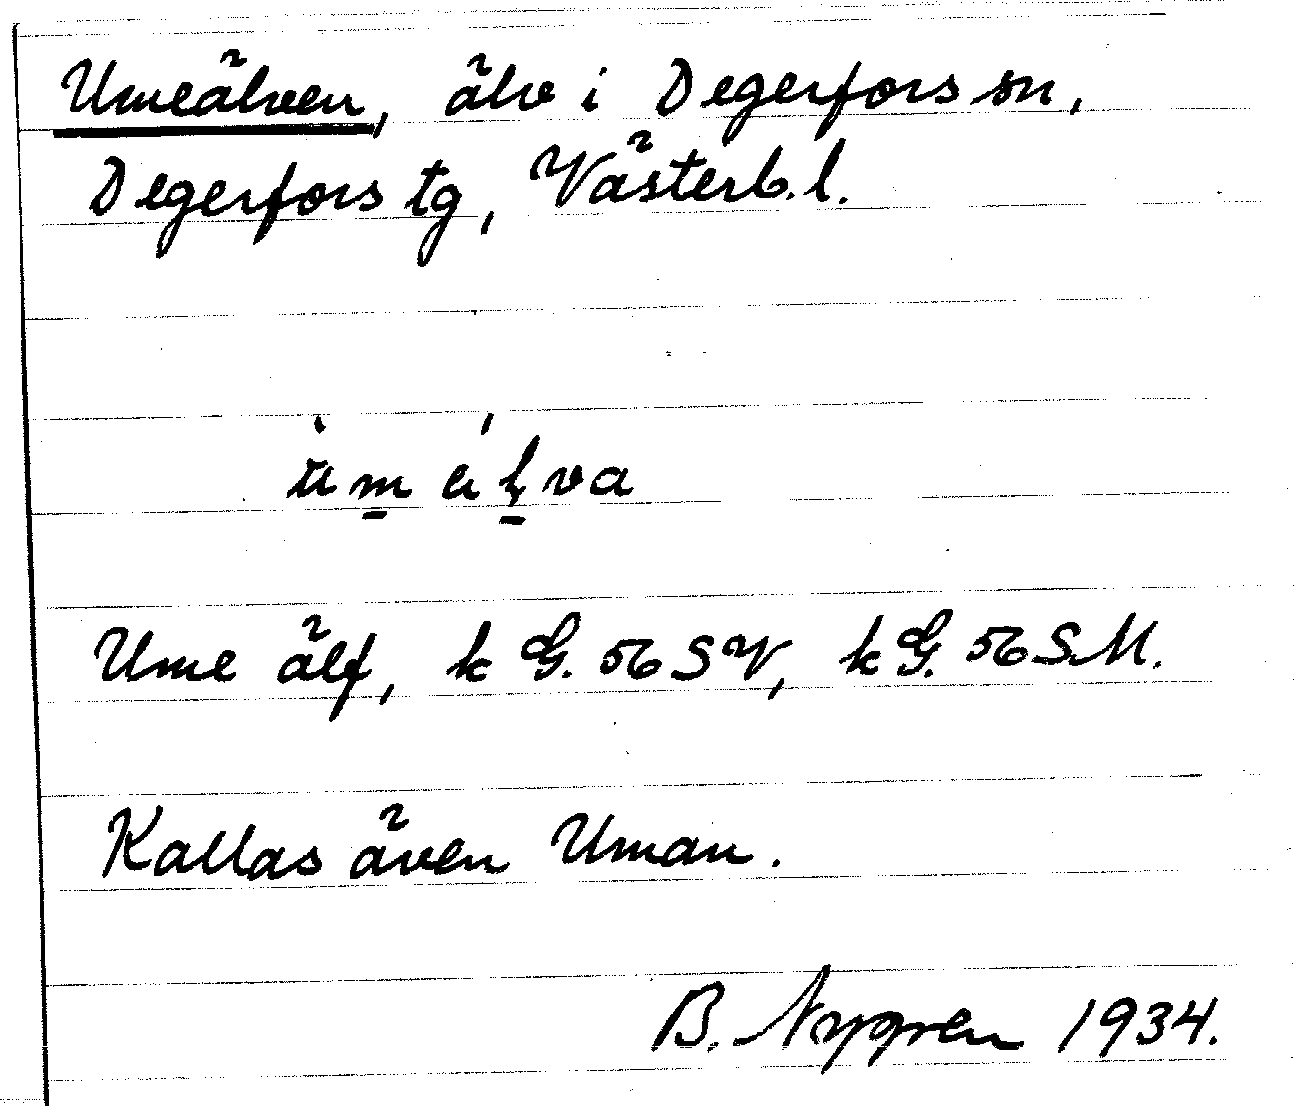 Umeälven, älv i Degerfors sn,
Degerfors tg, Västerb. l.
Ume älf, k G. 56 SV, k G. 56 S.M.
Kallas även Uman.
B. Nygren 1934.